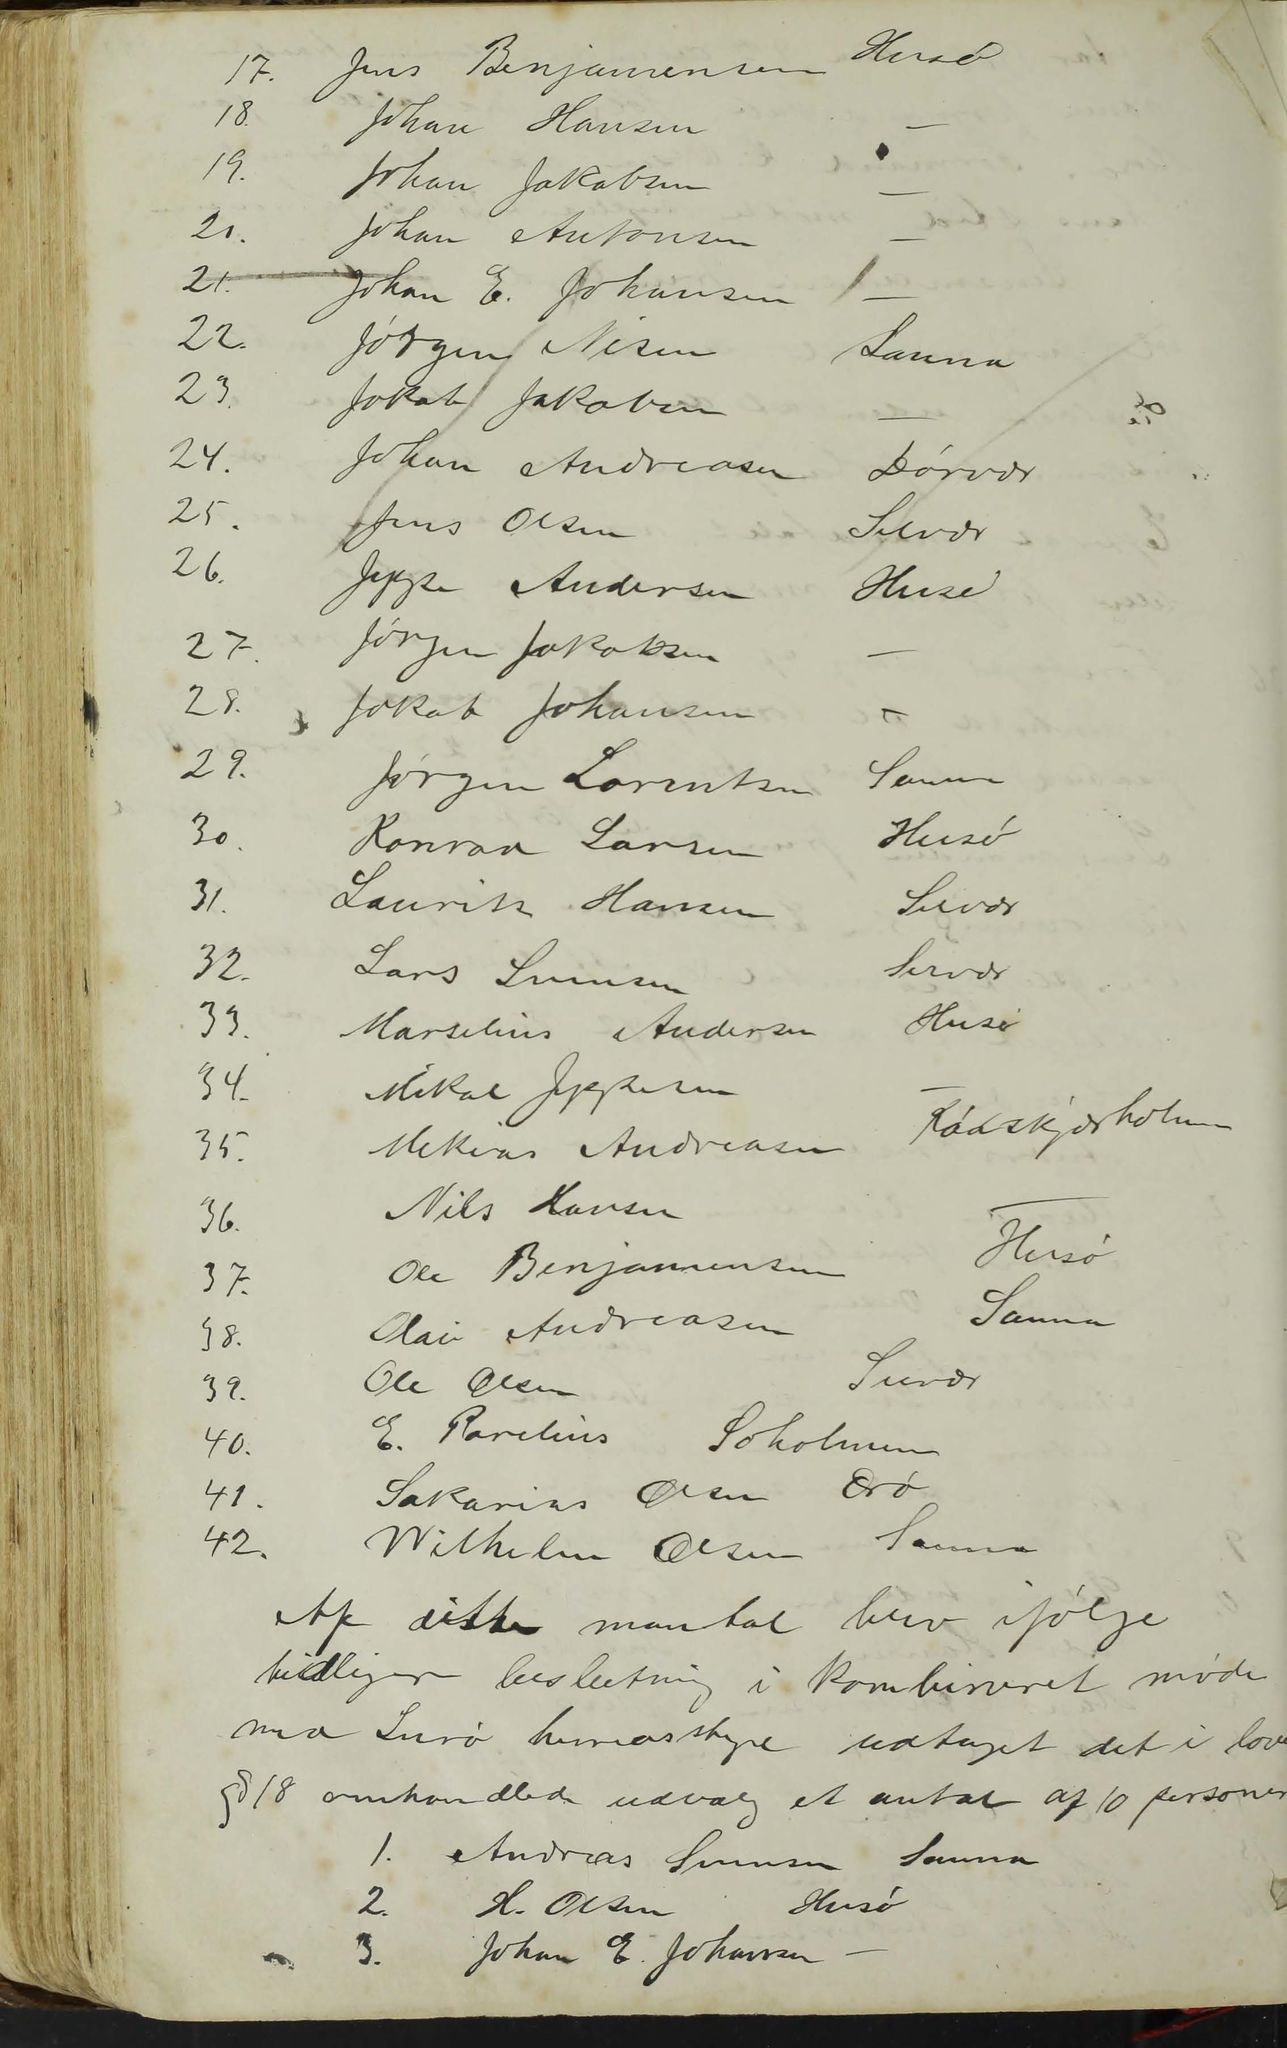 17. Jens Benjamensen Husö
18. Johan Hansen —
19. Johan Jakobsen —
20. Johan Antonsen —
21. Johan E. Johansen —
22. Jörgen Nisen Sanna
23. Jakob Jakobsen —
24. Johan Andreasen Dörvær
25. Jens Olsen Selvær
26. Jeppe Andersen Husö
27. Jörgen Jakobsen —
28. Jakob Johansen —
29. Jörgen Lorentsen Sanna
30. Konrad Larsen Husö
31. Lauritz Hansen Selvær
32. Lars Svensen Selvær
33. Marselius Andersen Husö
34. Mikal Jeppesen —
35. Mekias Andreasen Rödskjærholmen
36. Nils Hansen —
37. Ole Benjamensen Husö
38. Olai Andreasen Sanna
39. Ole Olsen Selvær
40. E. Parelius Soholmen
41. Sakarias Olsen
42. Wilhelm Olsen Sanna
Af dette mantal blev ifölge
tidligere beslutning i kombineret möde
med Lurö herredsstyre udtaget det i lovens
§ 18 omhandlede udvalg et antal af 10 personer
1. Andreas Svensen Sanna
2. H. Olsen Husö
3. Johan E. Johansen —